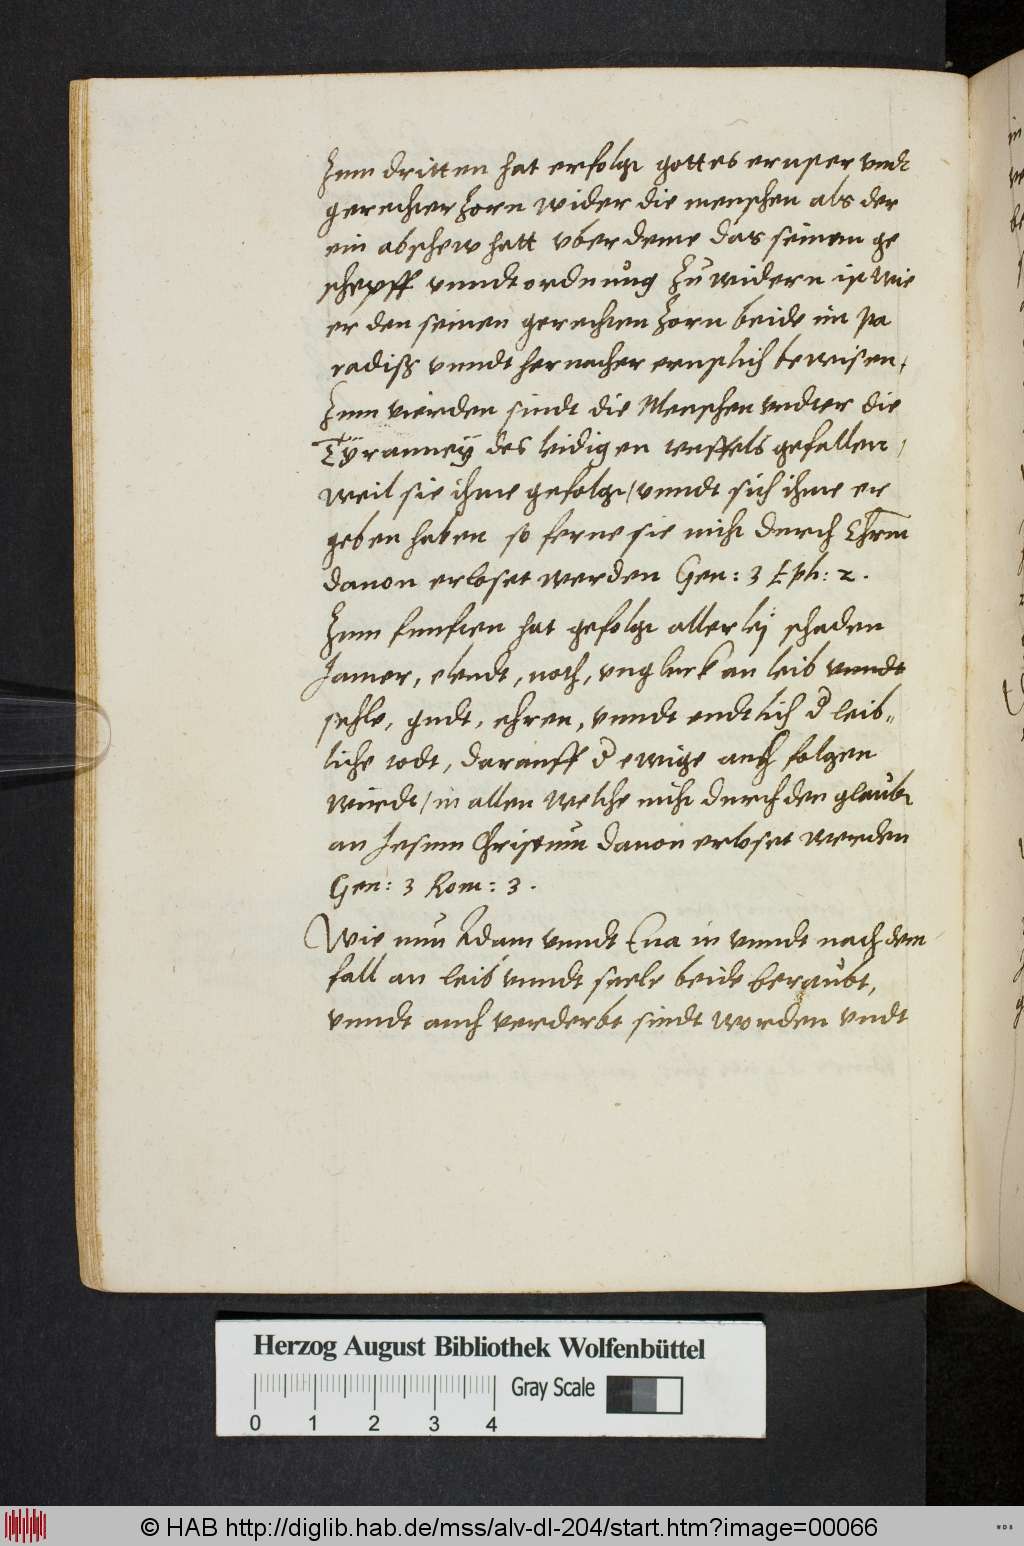 Zum dritten hat erfolgt gottes ernster vndt
gerechter Zorn wider die menschen als der
ein abschew hatt vber deme das seinem ge
schepff vnndt ordnung Zu widern ist wie
er den seinen gerechten Zorn beide im pa
radiß vnndt hernacher ernstlich bewisen,
Zum vierden sindt die Menschen vndter die
Tÿranneÿ des leidigen teuffels gefallen,
weil sie ihme gefolgt/vnndt sich ihme er
geben haben so ferne sie nicht durch Chrm
dauon erloset werden Gen: 3 Eph: 2.
Zum funften hat gefolgt allerleÿ schaden
Jamer, elendt, noth, vngluck an leib vnndt
sehle, gudt, ehren, vnndt endtlich d leib„
liche todt, darauff d ewige auch folgen
wurdt/in allen welche nicht durch den glaub
an Jesum Christum dauon erloset werden
Gen: 3 Rom: 3.
Wie nun Adam vnndt Eua in vnndt nach dem
fall an leib vnndt seele beide beraubt,
vnndt auch verderbt sindt worden vndt
Herzog August Bibliothek Wolfenbüttel
Gray Scale
0 1 2 3 4
© HAB http://diglib.hab.de/mss/alv-dl-204/start.htm?image=00066